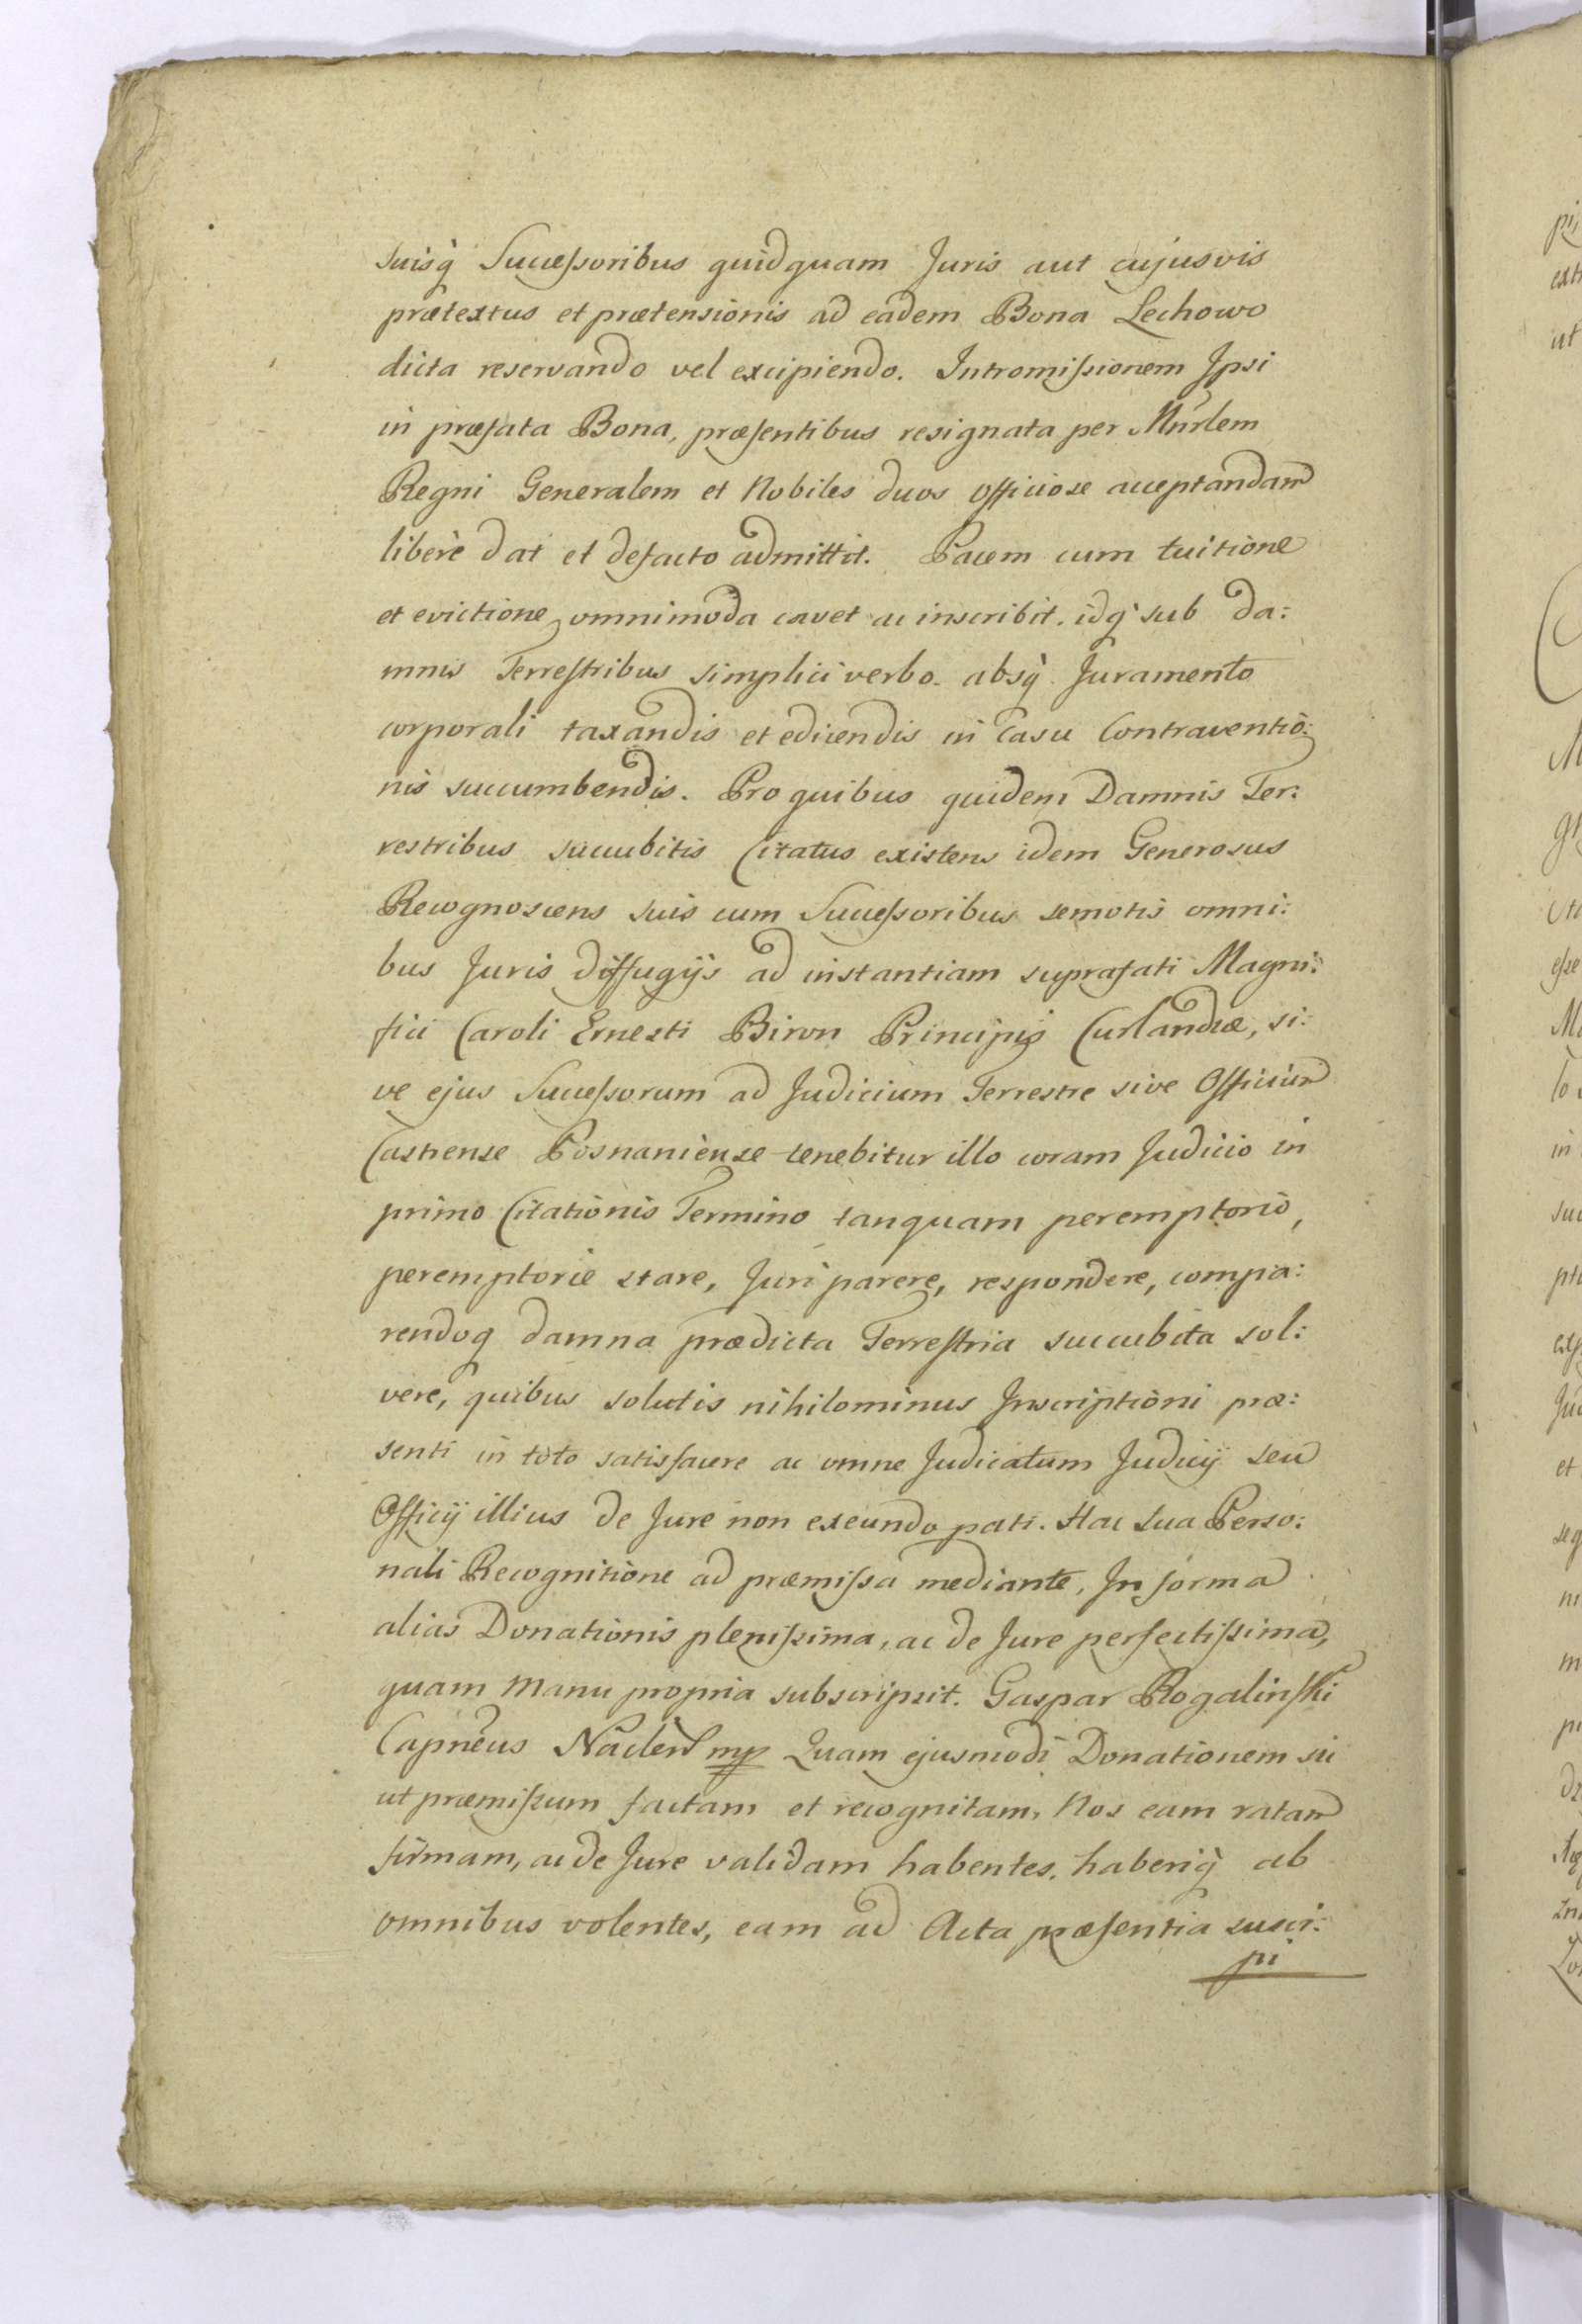 suisq̀ Successoribus quidquam Juris aut cujusvis
prætextus et prætensionis ad eadem Bona Lechowo
dicta reservando vel excipiendo. Intromissionem Ipsi
in præfata Bona, præsentibus resignata per Mnrlem
Regni Generalem et Nobiles duos officiose acceptandam
liberè dat et defacto admittit. Pacem cum tuitione
et evictione omnimoda cavet ac inscribit. idq̀ sub da:
mnis Terrestribus simplici verbo absq̀ Juramento
corporali taxandis et edicendis in Casu Contraventio:
nis succumbendis. Pro quibus quidem Damnis Ter:
restribus succubitis Citatus existens idem Generosus
Recognoscens suis cum Successoribus semotis omni:
bus Juris diffugijs ad instantiam suprafati Magni:
fici Caroli Ernesti Biron Principis Curlandiæ, si:
ve ejus Successorum ad Judicium Terrestre sive Officium
Castrense Posnaniense tenebitur illo coram Judicio in
primo Citationis Termino tanquam peremptorio,
peremptorie stare, Juri parere, respondere, compa:
rendoq damna prædicta Terrestria succubita sol:
vere, quibus solutis nihilominus Inscriptioni præ:
senti in toto satisfacere ac omne Judicatum Judicij seu
Officij illius de Jure non exeundo pati. Hac sua Perso:
nali Recognitione ad præmissa mediante, In forma
alias Donationis plenissima, ac de Jure perfectissima,
quam Manu propria subscripsit. Gaspar Rogalinski
Capneus Naclen mp Quam ejusmodi Donationem sic
ut præmissum factam et recognitam, Nos eam ratam
firmam, ac de Jure validam habentes, haberiq̀ ab
omnibus volentes, eam ad Acta præsentia susci:
pi